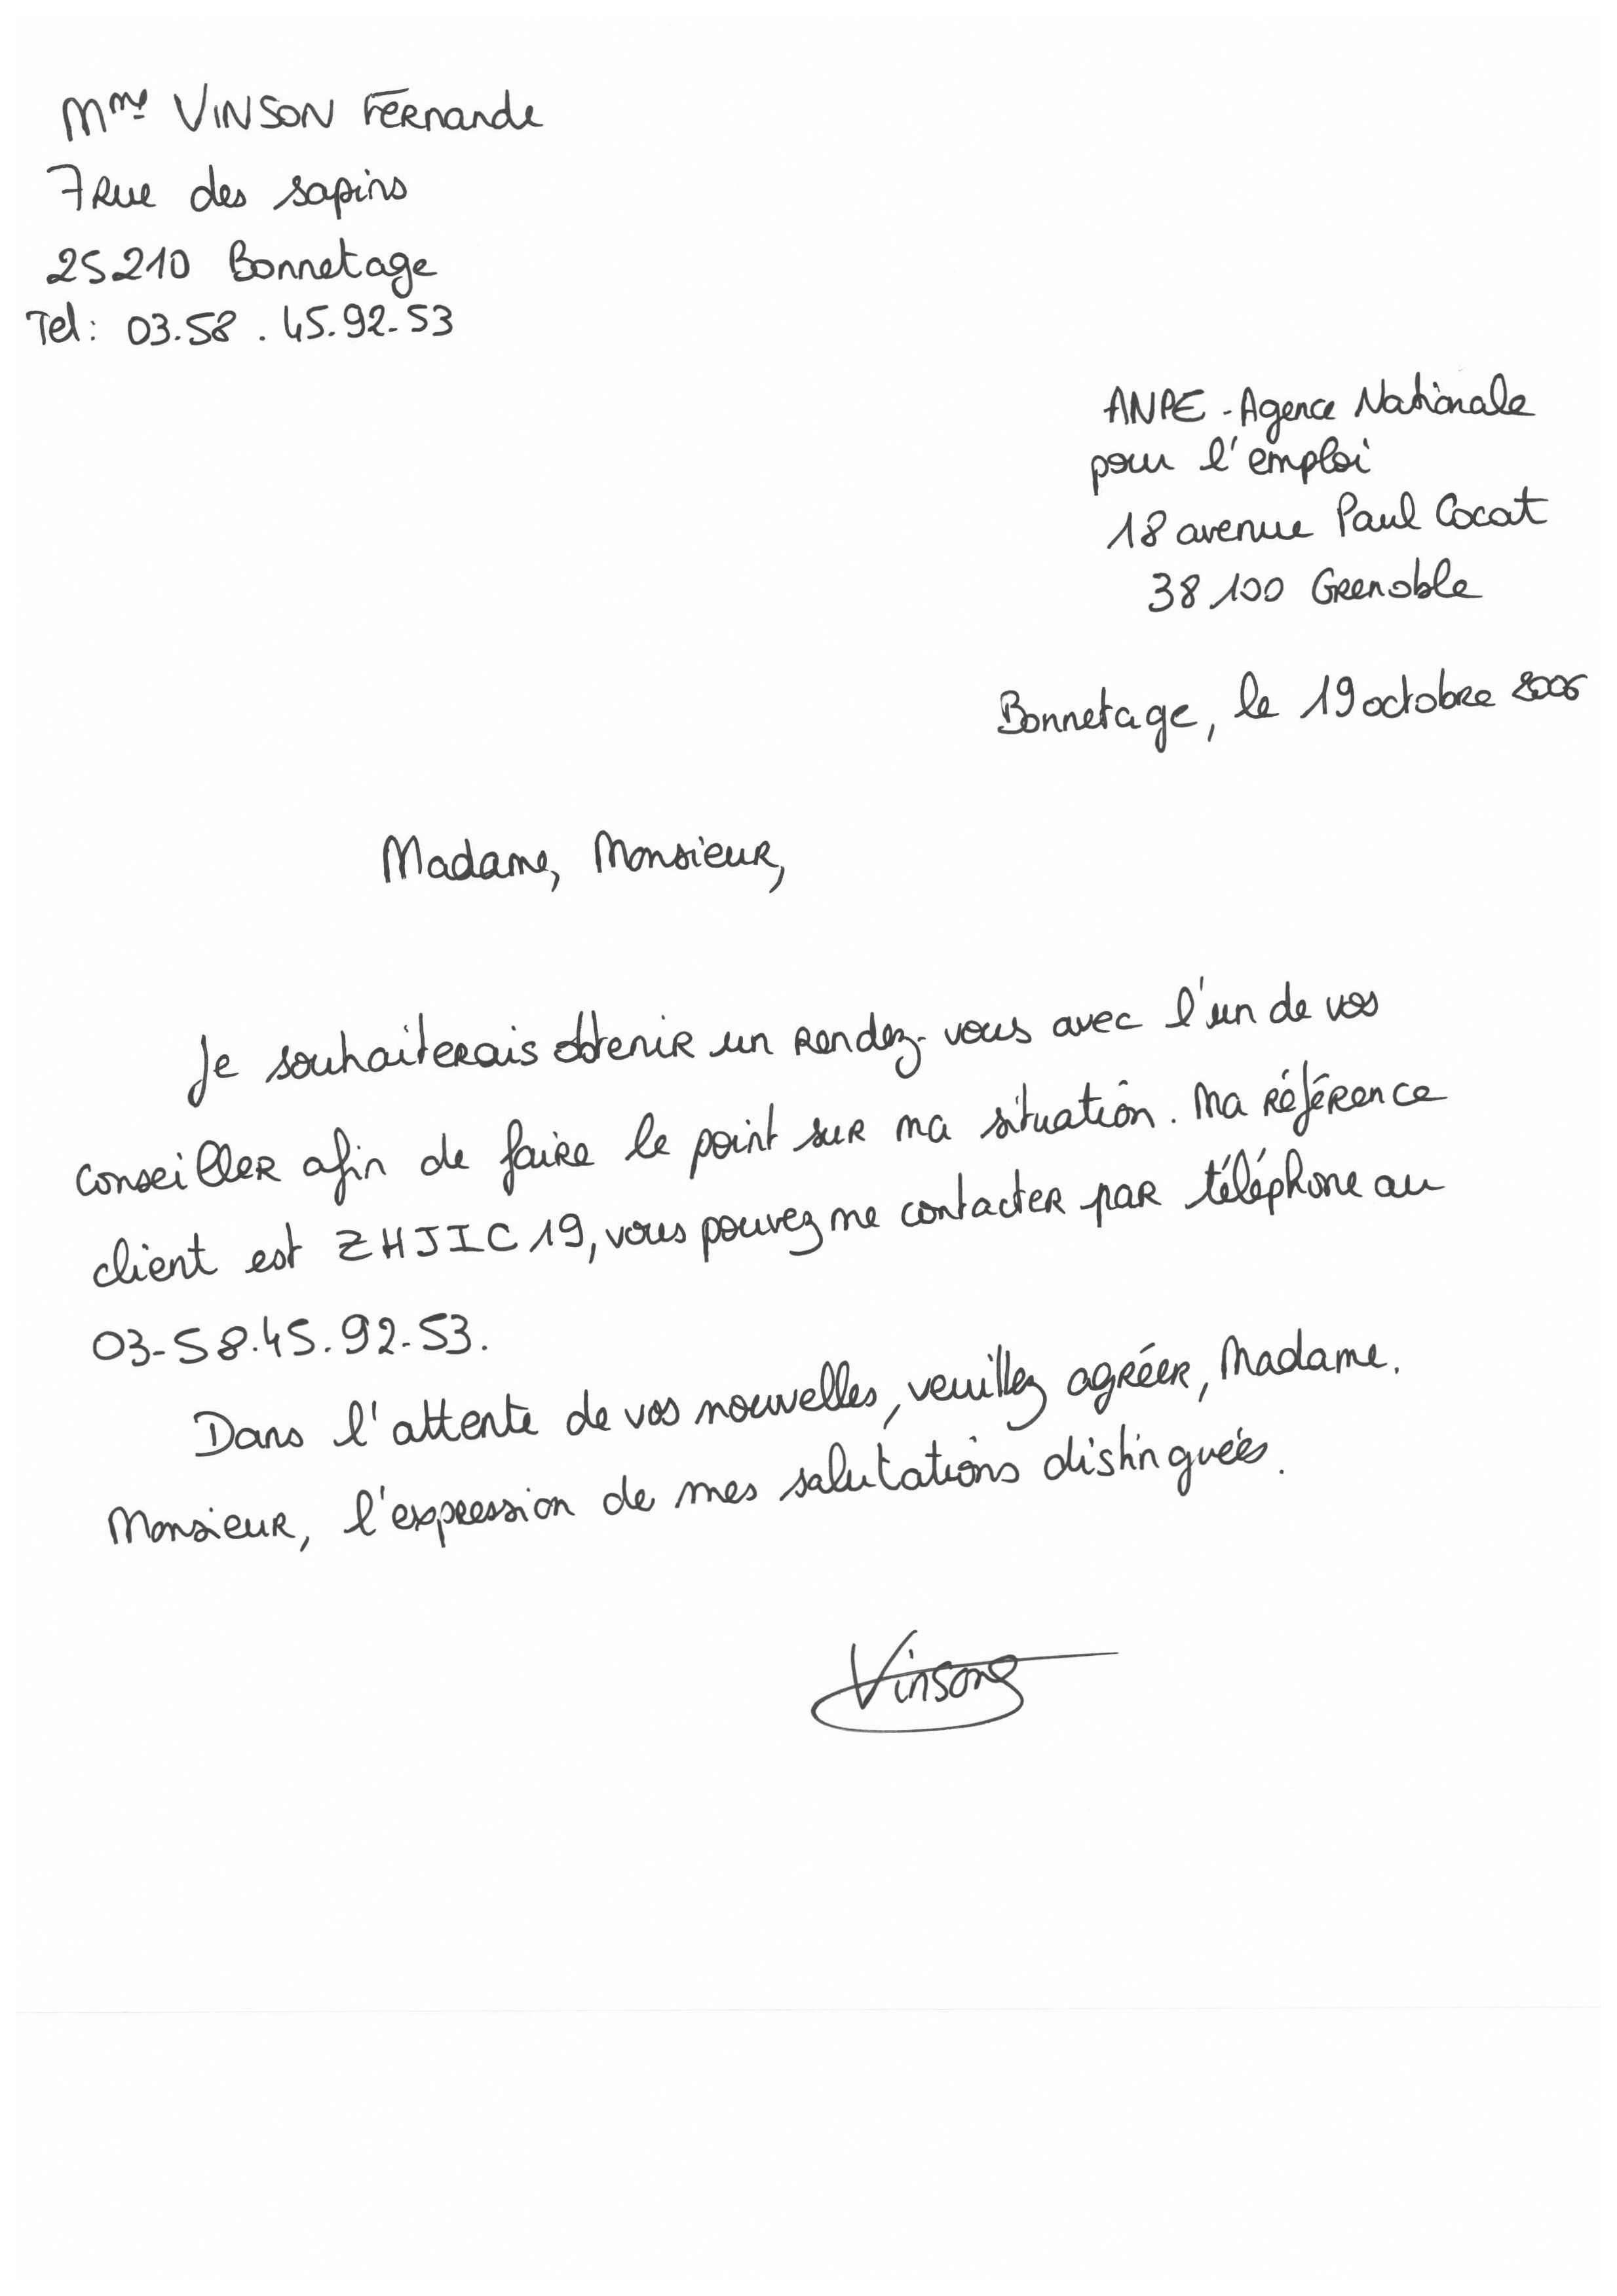 Mme VINSON Fernande
7 Rue des sapins
25210 Bonnetage
Tel: 03.58.45.92-53
ANPE - Agence Nationale
pour l'emploi
18 avenue Paul Cocat
38100 Grenoble
Bonnetage, le 19 octobre 2006
Madame, Monsieur,
Je souhaiterais obtenir un rendez-vous avec l'un de vos
conseiller afin de faire le point sur ma situation. Ma référence
client est ZHJIC19, vous pouvez me contacter par téléphone au
03-58.45.92-53.
Dans l'attente de vos nouvelles, veuillez agréer, Madame.
Monsieur, l'expression de mes salutations distinguées.
Vinson